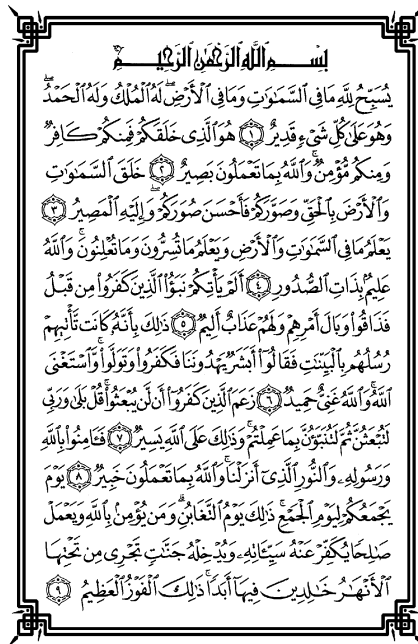 بِسْمِ اللَّهِ الرَّحْمَٰنِ الرَّحِيمِ
يُسَبِّحُ لِلَّهِ مَا فِي السَّمَٰوَٰتِ وَمَا فِي الْأَرْضِ ۖ لَهُ الْمُلْكُ وَلَهُ الْحَمْدُ ۖ
وَهُوَ عَلَىٰ كُلِّ شَيْءٍ قَدِيرٌ ١ هُوَ الَّذِي خَلَقَكُمْ فَمِنكُمْ كَافِرٌ
وَمِنكُم مُّؤْمِنٌ ۚ وَاللَّهُ بِمَا تَعْمَلُونَ بَصِيرٌ ٢ خَلَقَ السَّمَٰوَٰتِ
وَالْأَرْضَ بِالْحَقِّ وَصَوَّرَكُمْ فَأَحْسَنَ صُوَرَكُمْ ۖ وَإِلَيْهِ الْمَصِيرُ ٣
يَعْلَمُ مَا فِي السَّمَٰوَٰتِ وَالْأَرْضِ وَيَعْلَمُ مَا تُسِرُّونَ وَمَا تُعْلِنُونَ ۚ وَاللَّهُ
عَلِيمٌۢ بِذَاتِ الصُّدُورِ ٤ أَلَمْ يَأْتِكُمْ نَبَؤُا۟ الَّذِينَ كَفَرُوا۟ مِن قَبْلُ
فَذَاقُوا۟ وَبَالَ أَمْرِهِمْ وَلَهُمْ عَذَابٌ أَلِيمٌ ٥ ذَٰلِكَ بِأَنَّهُۥ كَانَت تَّأْتِيهِمْ
رُسُلُهُم بِالْبَيِّنَٰتِ فَقَالُوٓا۟ أَبَشَرٌ يَهْدُونَنَا فَكَفَرُوا۟ وَتَوَلَّوا۟ ۚ وَّاسْتَغْنَى
اللَّهُ ۚ وَاللَّهُ غَنِيٌّ حَمِيدٌ ٦ زَعَمَ الَّذِينَ كَفَرُوٓا۟ أَن لَّن يُبْعَثُوا۟ ۚ قُلْ بَلَىٰ وَرَبِّي
لَتُبْعَثُنَّ ثُمَّ لَتُنَبَّؤُنَّ بِمَا عَمِلْتُمْ ۚ وَذَٰلِكَ عَلَى اللَّهِ يَسِيرٌ ٧ فَـَٔامِنُوا۟ بِاللَّهِ
وَرَسُولِهِۦ وَالنُّورِ الَّذِيٓ أَنزَلْنَا ۚ وَاللَّهُ بِمَا تَعْمَلُونَ خَبِيرٌ ٨ يَوْمَ
يَجْمَعُكُمْ لِيَوْمِ الْجَمْعِ ۖ ذَٰلِكَ يَوْمُ التَّغَابُنِ ۗ وَمَن يُؤْمِنۢ بِاللَّهِ وَيَعْمَلْ
صَٰلِحًا يُكَفِّرْ عَنْهُ سَيِّـَٔاتِهِۦ وَيُدْخِلْهُ جَنَّٰتٍ تَجْرِي مِن تَحْتِهَا
الْأَنْهَٰرُ خَٰلِدِينَ فِيهَآ أَبَدًا ۚ ذَٰلِكَ الْفَوْزُ الْعَظِيمُ ٩